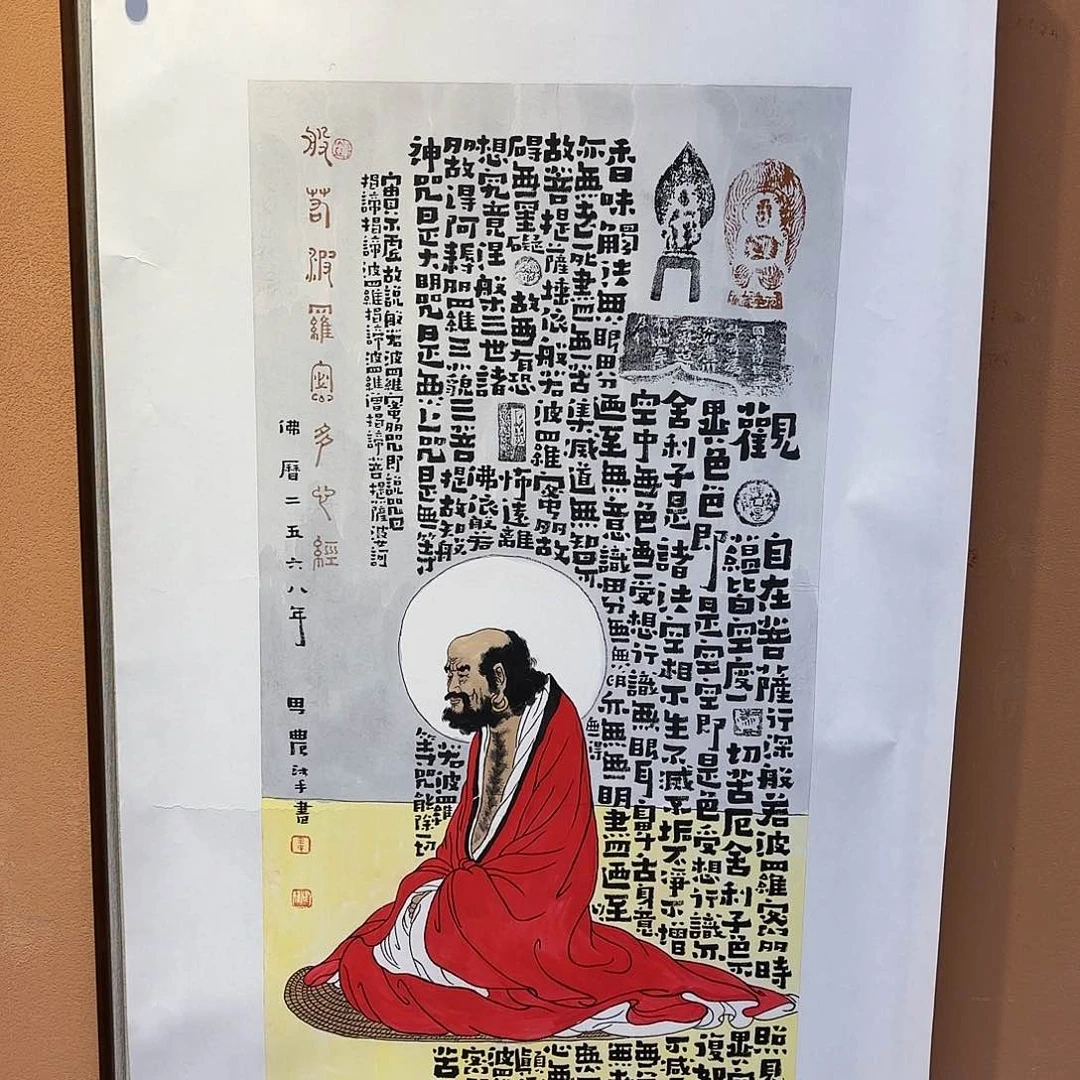 觀自在菩薩行深般若波羅蜜多時照見
蘊皆空度一切苦厄舍利子色不異空
異色色即是空空即是色受想行識亦復如
舍利子是諸法空相不生不滅不垢不淨不增不減
空中無色無受想行識無眼耳鼻舌身意無
香味觸法無眼界乃至無意識界無無明亦無無明盡乃至無
亦無老死盡無苦集滅道無智亦無得無
故菩提薩埵依般若波羅蜜多故心無
碍無罣礙故無有恐怖遠離顛
想究竟涅槃三世諸佛依般若波
多故得阿耨多羅三藐三菩提故知般若波羅蜜
神咒是大明咒是無上咒是無等等咒能除一切苦
實不虛故說般若波羅蜜多咒即說咒曰
揭諦揭諦波羅揭諦波羅僧揭諦菩提薩婆訶
般若波羅蜜多心經
佛曆二五六八年 農沐手書